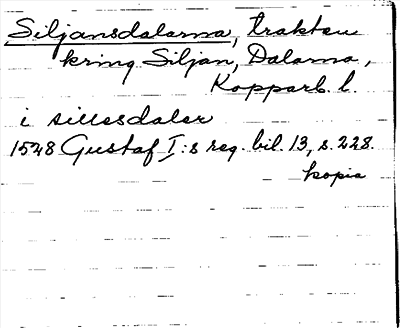 Siljansdalarna, trakten
kring Siljan, Dalarna,
Kopparb. l.
i sillesdaler
1528 Gustaf I:s reg. bil. 13, s. 228.
kopia